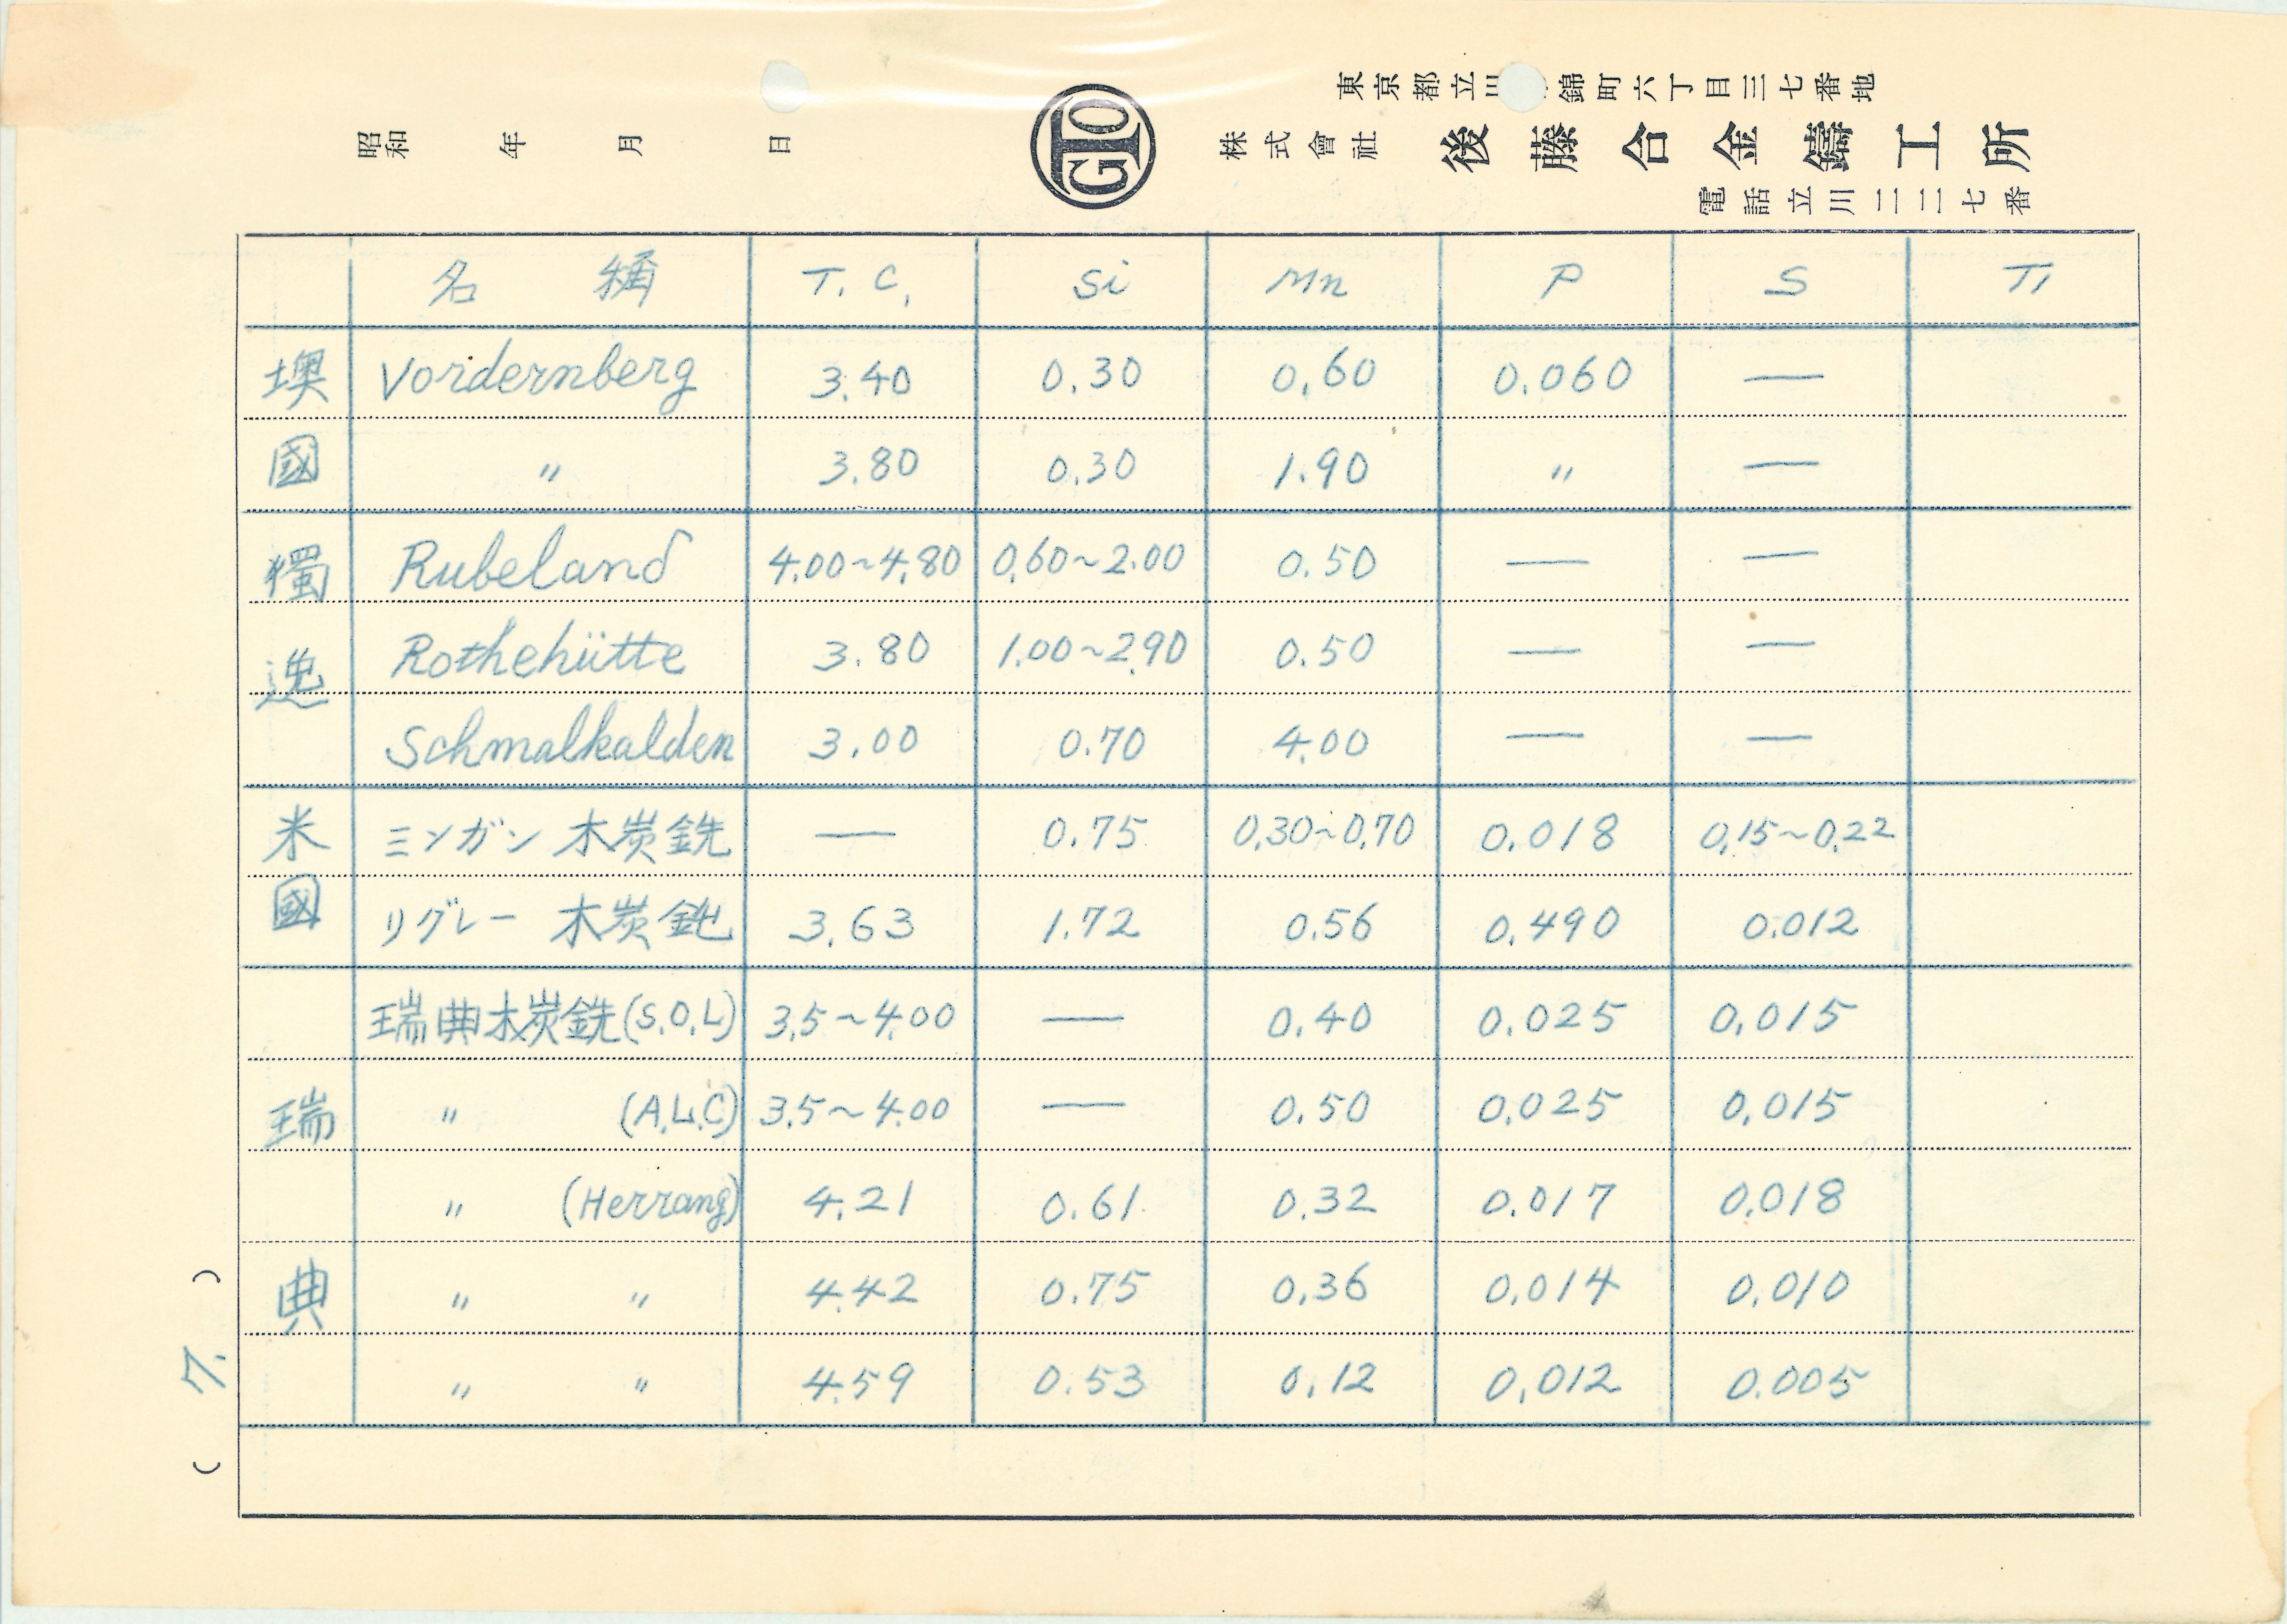 東京都立川 錦町六丁目三七番地
昭和 年 月 日
GTO
株式會社 後藤合金鑄工所
電話立川二二七番
名 稱 T. C. Si Mn P S Ti
墺 Vordernberg 3.40 0.30 0.60 0.060 —
國 〃 3.80 0.30 1.90 〃 —
獨 Rubeland 4.00~4.80 0.60~2.00 0.50 — —
逸 Rothehütte 3.80 1.00~2.90 0.50 — —
Schmalkalden 3.00 0.70 4.00 — —
米 ミンガン 木炭銑 — 0.75 0.30~0.70 0.018 0.15~0.22
國 リグレー 木炭銑 3.63 1.72 0.56 0.490 0.012
瑞典木炭銑(S.O.L) 3.5~4.00 — 0.40 0.025 0.015
瑞 〃 (A.L.C) 3.5~4.00 — 0.50 0.025 0.015
〃 (Herrang) 4.21 0.61 0.32 0.017 0.018
典 〃 〃 4.42 0.75 0.36 0.014 0.010
〃 〃 4.59 0.53 0.12 0.012 0.005
( 7. )